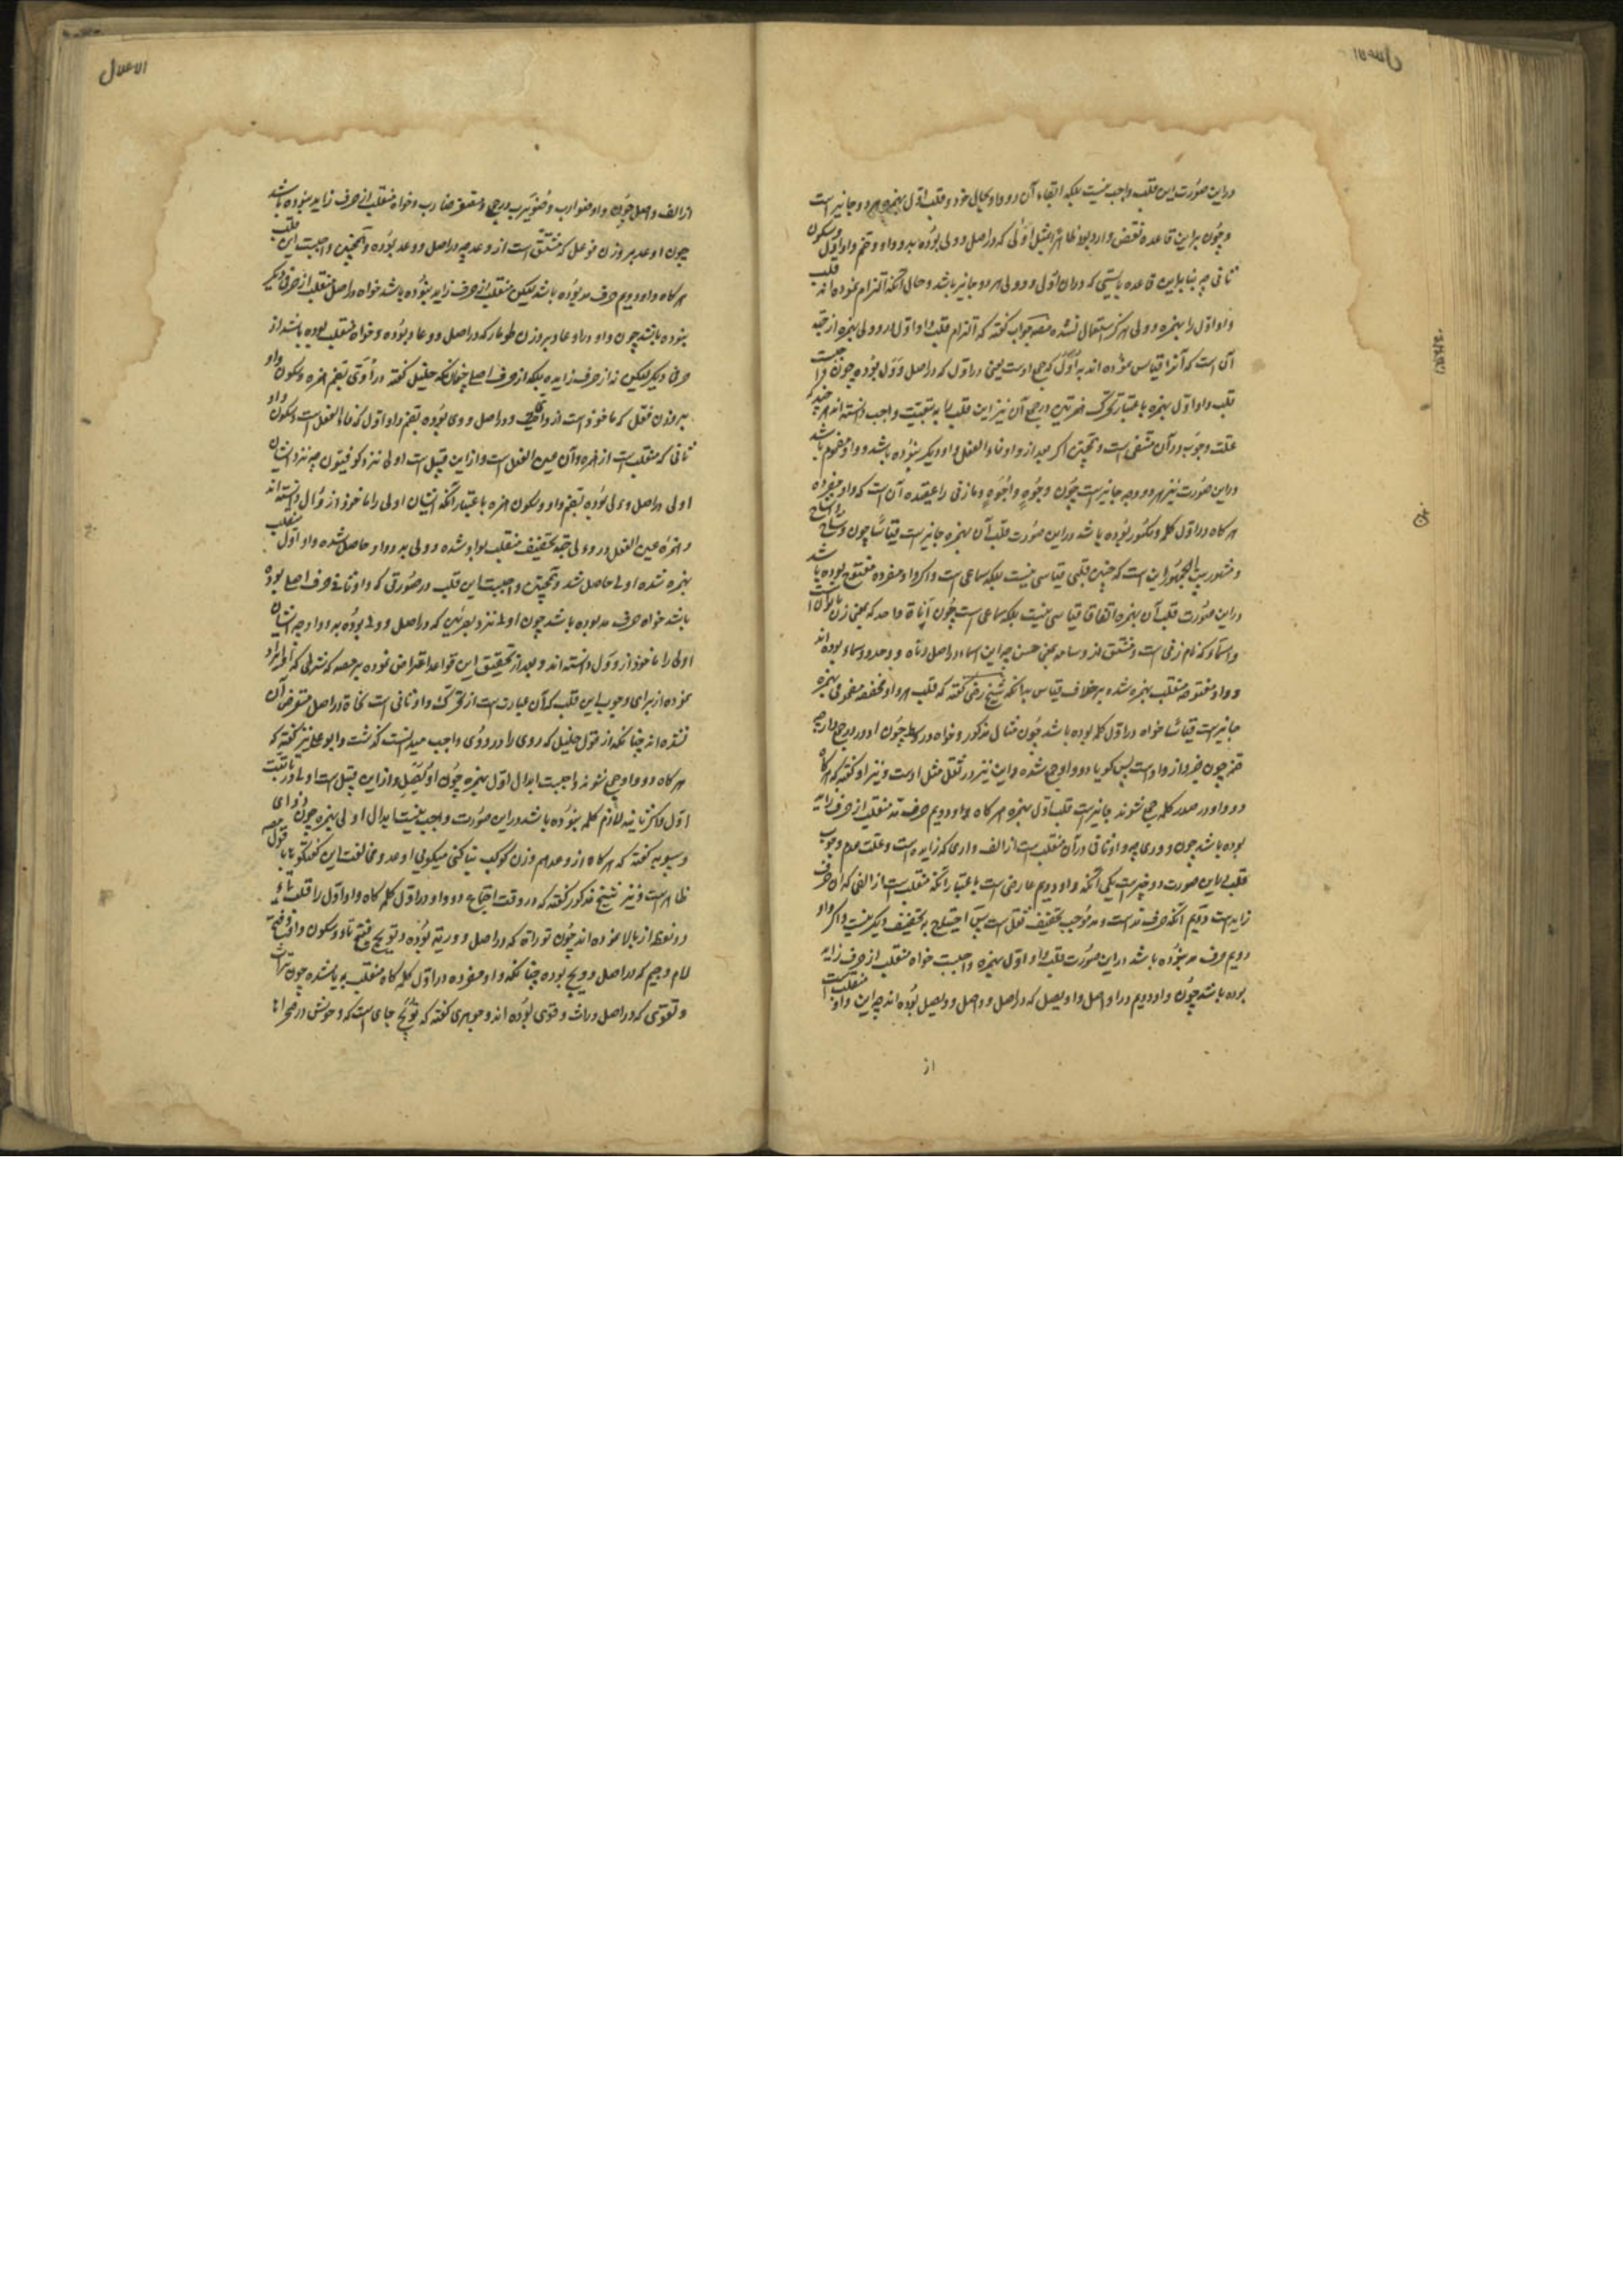 الاعلال
دراین صورت این قلب واجب نیست بلکه ابقاء آن دو واو بحال خود و قلب اوّل بهمزه هر دو جایز است
و چون براین قاعده نقض وارد بود ظاهرا بمثل اُولی که دراصل وولی بوده بدو واو و ضم واو اول و سکون
ثانی چه بنابراین قاعده بایستی که دران اُولی و وولی هر دو جایز باشد و حال آنکه التزام نموده اند قلب
واو اوّل را بهمزه و وولی هرگز استعمال نشده مصـ جواب گفته که التزام قلب واو اوّل در وولی بهمزه از جهة
آن است که آنرا قیاس نموده اند به اُوَل که جمع اوست یعنی در اول که دراصل وُوَل بوده چون واجبست
قلب واو اوّل بهمزه باعتبار تحرک درجمع آن نیز این قلب را به تبعیّت واجب دانسته اند هرچند که
علت وجوب درآن منتفی است و همچنین اگر بعد از واو فاء الفعل واو دیگر نبوده باشد و واو مضموم باشد
دراین صورت نیز هر دو وجه جایز است چون وجُوهٍ و اُجُوهٍ و مازنی را عقیده آن است که واو مفرده
هرگاه در اوّل کلمه و مکسور بوده باشد دراین صورت قلب آن بهمزه جایز است قیاسًا چون وشاح و اشاح
و مشهور بین الجمهور این است که چنین قلبی قیاسی نیست بلکه سماعی است و اگر واو مفرده مفتوح بوده باشد
دراین صورت قلب آن بهمزه اتفاقا قیاسی نیست بلکه سماعی است چون اَناة و احد که بمعنی زن
و اسماء که نام زنی است و مشتق از وسامه بمعنی حسن چه این اسماء دراصل وناه و وحد و وسماء بوده اند
و واو مفتوحه منقلب بهمزه شده برخلاف قیاس بدانکه شیخ رضی گفته که قلب هر واو مخففه مضمومی بهمزه
جایز است قیاسًا خواه در اوّل کلمه بوده باشد چون مثال مذکور و خواه در وسط چون ادؤر درجمع دار چه
ضمه چون جزو از واو است پس گویا دو واو جمع شده و این نیز در ثقل مثل اوست و نیز او گفته که هرگاه
دو واو در صدر کلمه جمع شوند جایز است قلب اوّل بهمزه هرگاه واو دویم حرف مد منقلب از حرف زاید
بوده باشد چون ووری چه واو ثانی درآن منقلب است از الف واری که زایده است و علت عدم وجوب
قلب دراین صورت دو چیز است یکی آنکه واو دویم عارضی است باعتبار آنکه منقلب است از الفی که آن حرف
زاید است و دویم آنکه حرف مد است و مد موجب تخفیف ثقل است پس احتیاج به تخفیف دیگر نیست و اگر واو
دویم حرف مد نبوده باشد دراین صورت قلب واو اوّل بهمزه واجبست خواه منقلب از حرف زاید
بوده باشد چون واو دویم در اواصل و اویصل که دراصل وواصل و وویصل بوده اند چه این واو منقلب است
از
الاعلال
از الف واصل چون واو ضوارب و ضویرب درجمع و مصغر ضارب و خواه منقلب از حرف زاید نبوده باشد
چون اوعد بروزن فوعل که مشتق است از وعد چه دراصل ووعد بوده و همچنین واجبست این قلب
هرگاه واو دویم حرف مد بوده باشد لیکن منقلب از حرف زاید نبوده باشد خواه دراصل منقلب از حرف دیگر
نبوده باشد چون واو در اوعاد بروزن طومار که دراصل ووعاد بوده و خواه منقلب بوده باشد از
حرف دیگر لیکن نه از حرف زایده بلکه از حرف اصلی چنانکه خلیل گفته در اُوَی بضم همزه و سکون واو
بروزن فعل که ماخوذ است از وای دراصل ووی بوده بضم واو اوّل که فاء الفعل است و سکون واو
ثانی که منقلب است از همزه و آن عین الفعل است و از این قبیل است اولی نزد کوفیّون چه نزد ایشان
اولی دراصل وءلی بوده بضم واو و سکون همزه باعتبار آنکه ایشان اولی را ماخوذ از وُال دانسته اند
و همزه عین الفعل در وءلی جهة تخفیف منقلب بواو شده وولی بدو واو حاصل شده واو اوّل منقلب
بهمزه شده اولی حاصل شد و همچنین واجبست این قلب درصورتی که واو ثانی حرف اصلی بوده
باشد خواه حرف مد بوده باشد چون اولی نزد بصریّین که دراصل وولی بوده بدو واو چه ایشان
اولی را ماخوذ از وَوَل دانسته اند و بعد از تحقیق این قواعد اعتراض نموده بر مصـ که شرطی که او ایراد
نموده از برای وجوب این قلب که آن عبارت است از تحرک واو ثانی است نحاة دراصل متعرض آن
نشده اند چنانکه از قول خلیل که روی را در ووی واجب میدانست گذشت و ابوعلی نیز گفته که
هرگاه دو واو جمع شوند واجبست ابدال اوّل بهمزه چون اویصل و از این قبیل است اولی در تانیث
اوّل و اگر ثانیه لازم کلمه نبوده باشد دراین صورت واجب نیست ابدال اولی بهمزه چون
و سیبویه گفته که هرگاه از وعد هم وزن کوکب بنا کنی میگویی اوعد و مخالفت این گفتگو با قول مصـ
ظاهر است و نیز شیخ مذکور گفته که در وقت اجتماع دو واو در اوّل کلمه گاه واو اوّل را قلب بتاء
نموده اند چون توراة که دراصل وورية بوده و تولج بفتح تاء و سکون واو و فتح
لام و جیم که دراصل وولج بوده چنانکه واو مفرده در اوّل کلمه گاه منقلب به تا شده چون تراث
و تقوی که دراصل وراث و وقوی بوده اند و جوهری گفته که تولج جای است که وحوش در صحراها